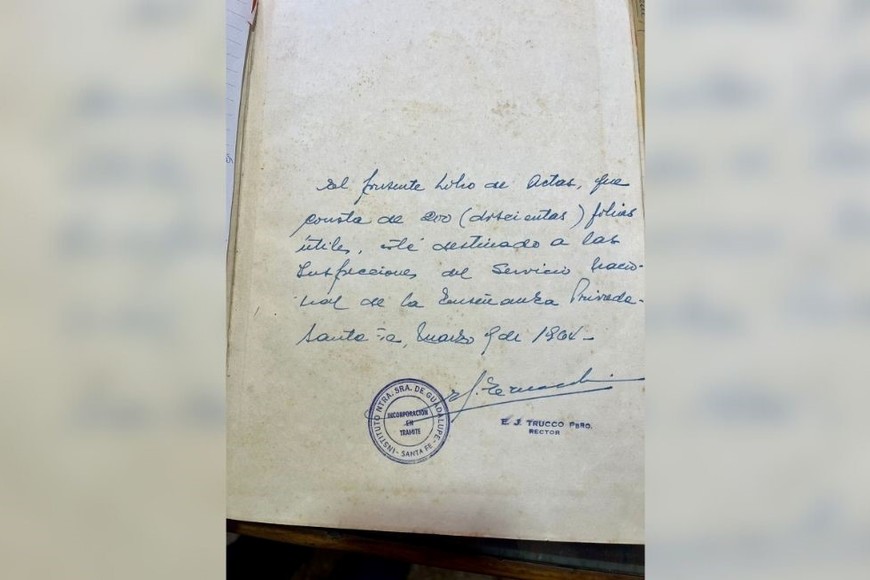 El presente Libro de Actas, que
consta de 200 (doscientas) folios
útiles, está destinado a las
Inspecciones del Servicio Nacio-
nal de la Enseñanza Privada.-
Santa Fe, Marzo 9 de 1964.-
INSTITUTO NTRA. SRA. DE GUADALUPE
INCORPORACIÓN
EN
TRÁMITE
- SANTA FE -
E. J. TRUCCO PBRO.
RECTOR